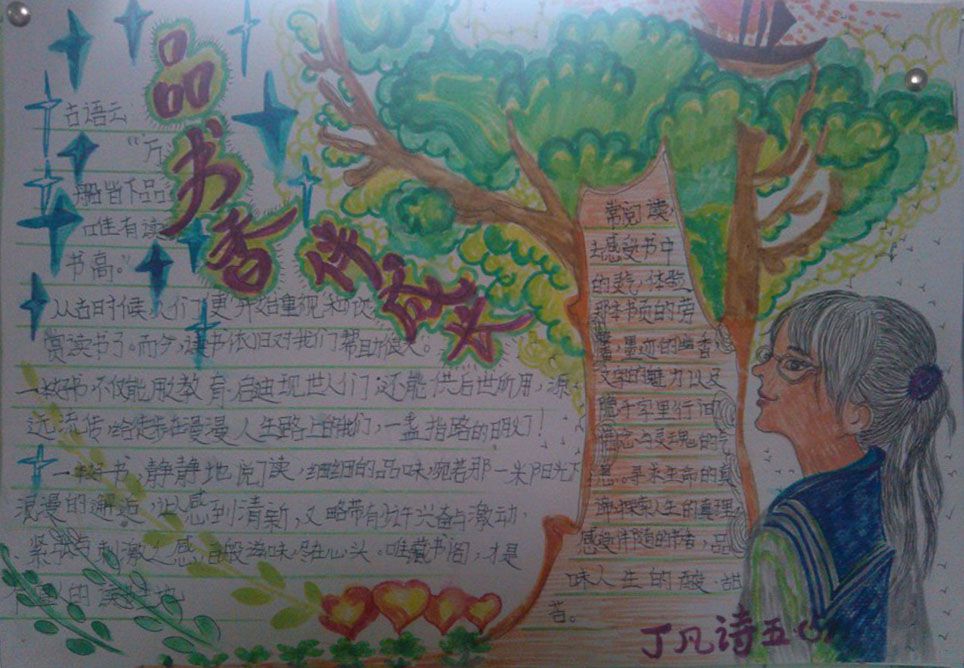 品书香 伴成长
古语云
“万
册皆下品，
唯有读
书高。”
从古时候，人们了更开始重视和欣
赏读书了。而今，读书依旧对我们帮助很大。
一本好书，不仅能用以教育、启迪现世人们，还能供后世所用，源
远流传，给徒步在漫漫人生路上的我们，一盏指路的明灯！
一本好书，静静地阅读，细细的品味，宛若那一米阳光下
浪漫的邂逅，让人感到清新，又略带有些许兴奋与激动，
紧张与刺激之感，百般滋味，尽在心头。唯藏书阁，才是
人的
常阅读
感受书中
的灵气，体验
那书页的旁
墨迹的幽香
文字的魅力以及
随于字里行间
信念与灵魂的气
息。寻求生命的真
谛，探索人生的真理，
感受伴随的书香，品
味人生的酸、甜
苦。
丁凡诗五